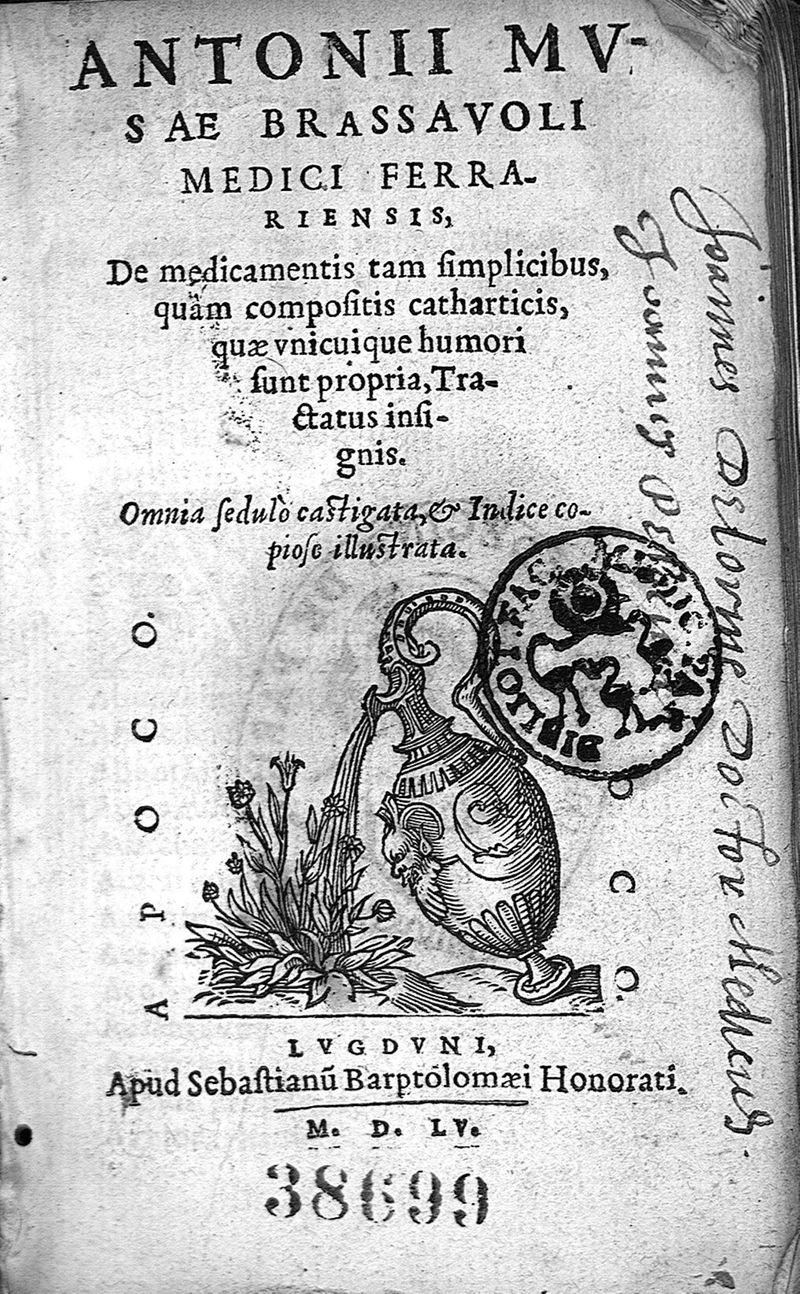 ANTONII MV-
SAE BRASSAVOLI
MEDICI FERRA-
RIENSIS,
De medicamentis tam ſimplicibus,
quàm compoſitis catharticis,
quæ vnicuique humori
ſunt propria, Tra-
ctatus inſi-
gnis.
Omnia ſedulò caſtigata, & Indice co-
pioſe illuſtrata.
A POCO.
POCO.
BIBLIOT. FAC. MEDIC. PAR
Joannes Delorme Doctor Medicus.
LVGDVNI,
Apud Sebaſtianũ Barptolomæi Honorati.
M. D. LV.
38699